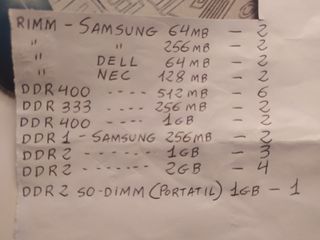 RIMM - SAMSUNG 64MB - 2
" " 256MB - 2
" DELL 64MB - 2
" NEC 128MB - 2
DDR 400 ---- 512MB - 6
DDR 333 ---- 256MB - 2
DDR 400 ---- 1GB - 2
DDR 1 - SAMSUNG 256MB - 2
DDR 2 ------- 1GB - 3
DDR 2 ------- 2GB - 4
DDR 2 SO-DIMM (PORTATIL) 1GB - 1